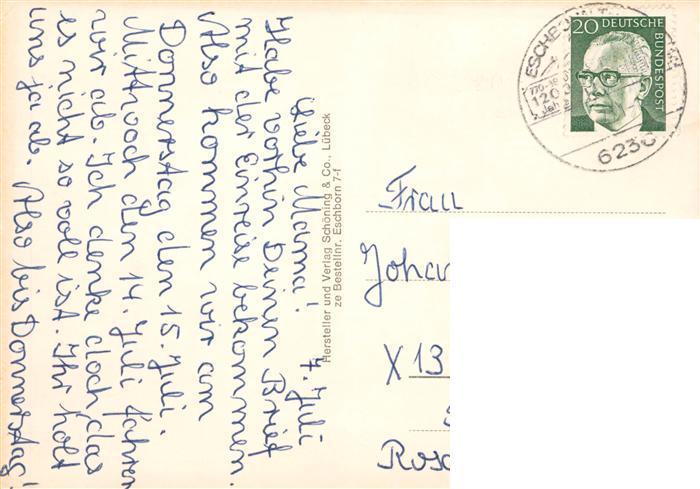 4. Juli
Liebe Mama!
Habe vorhin Deinen Brief
mit der Einreise bekommen.
Also kommen wir am
Donnerstag den 15. Juli.
Mittwoch den 14. Juli fahren
wir ab. Ich denke doch das
es nicht so voll ist. Ihr holt
uns ja ab. Also bis Donnerstag!
Hersteller und Verlag Schöning & Co., Lübeck
ze Bestellnr. Eschborn 7-f
20 DEUTSCHE
BUNDESPOST
6236
Frau
Johan
X 13